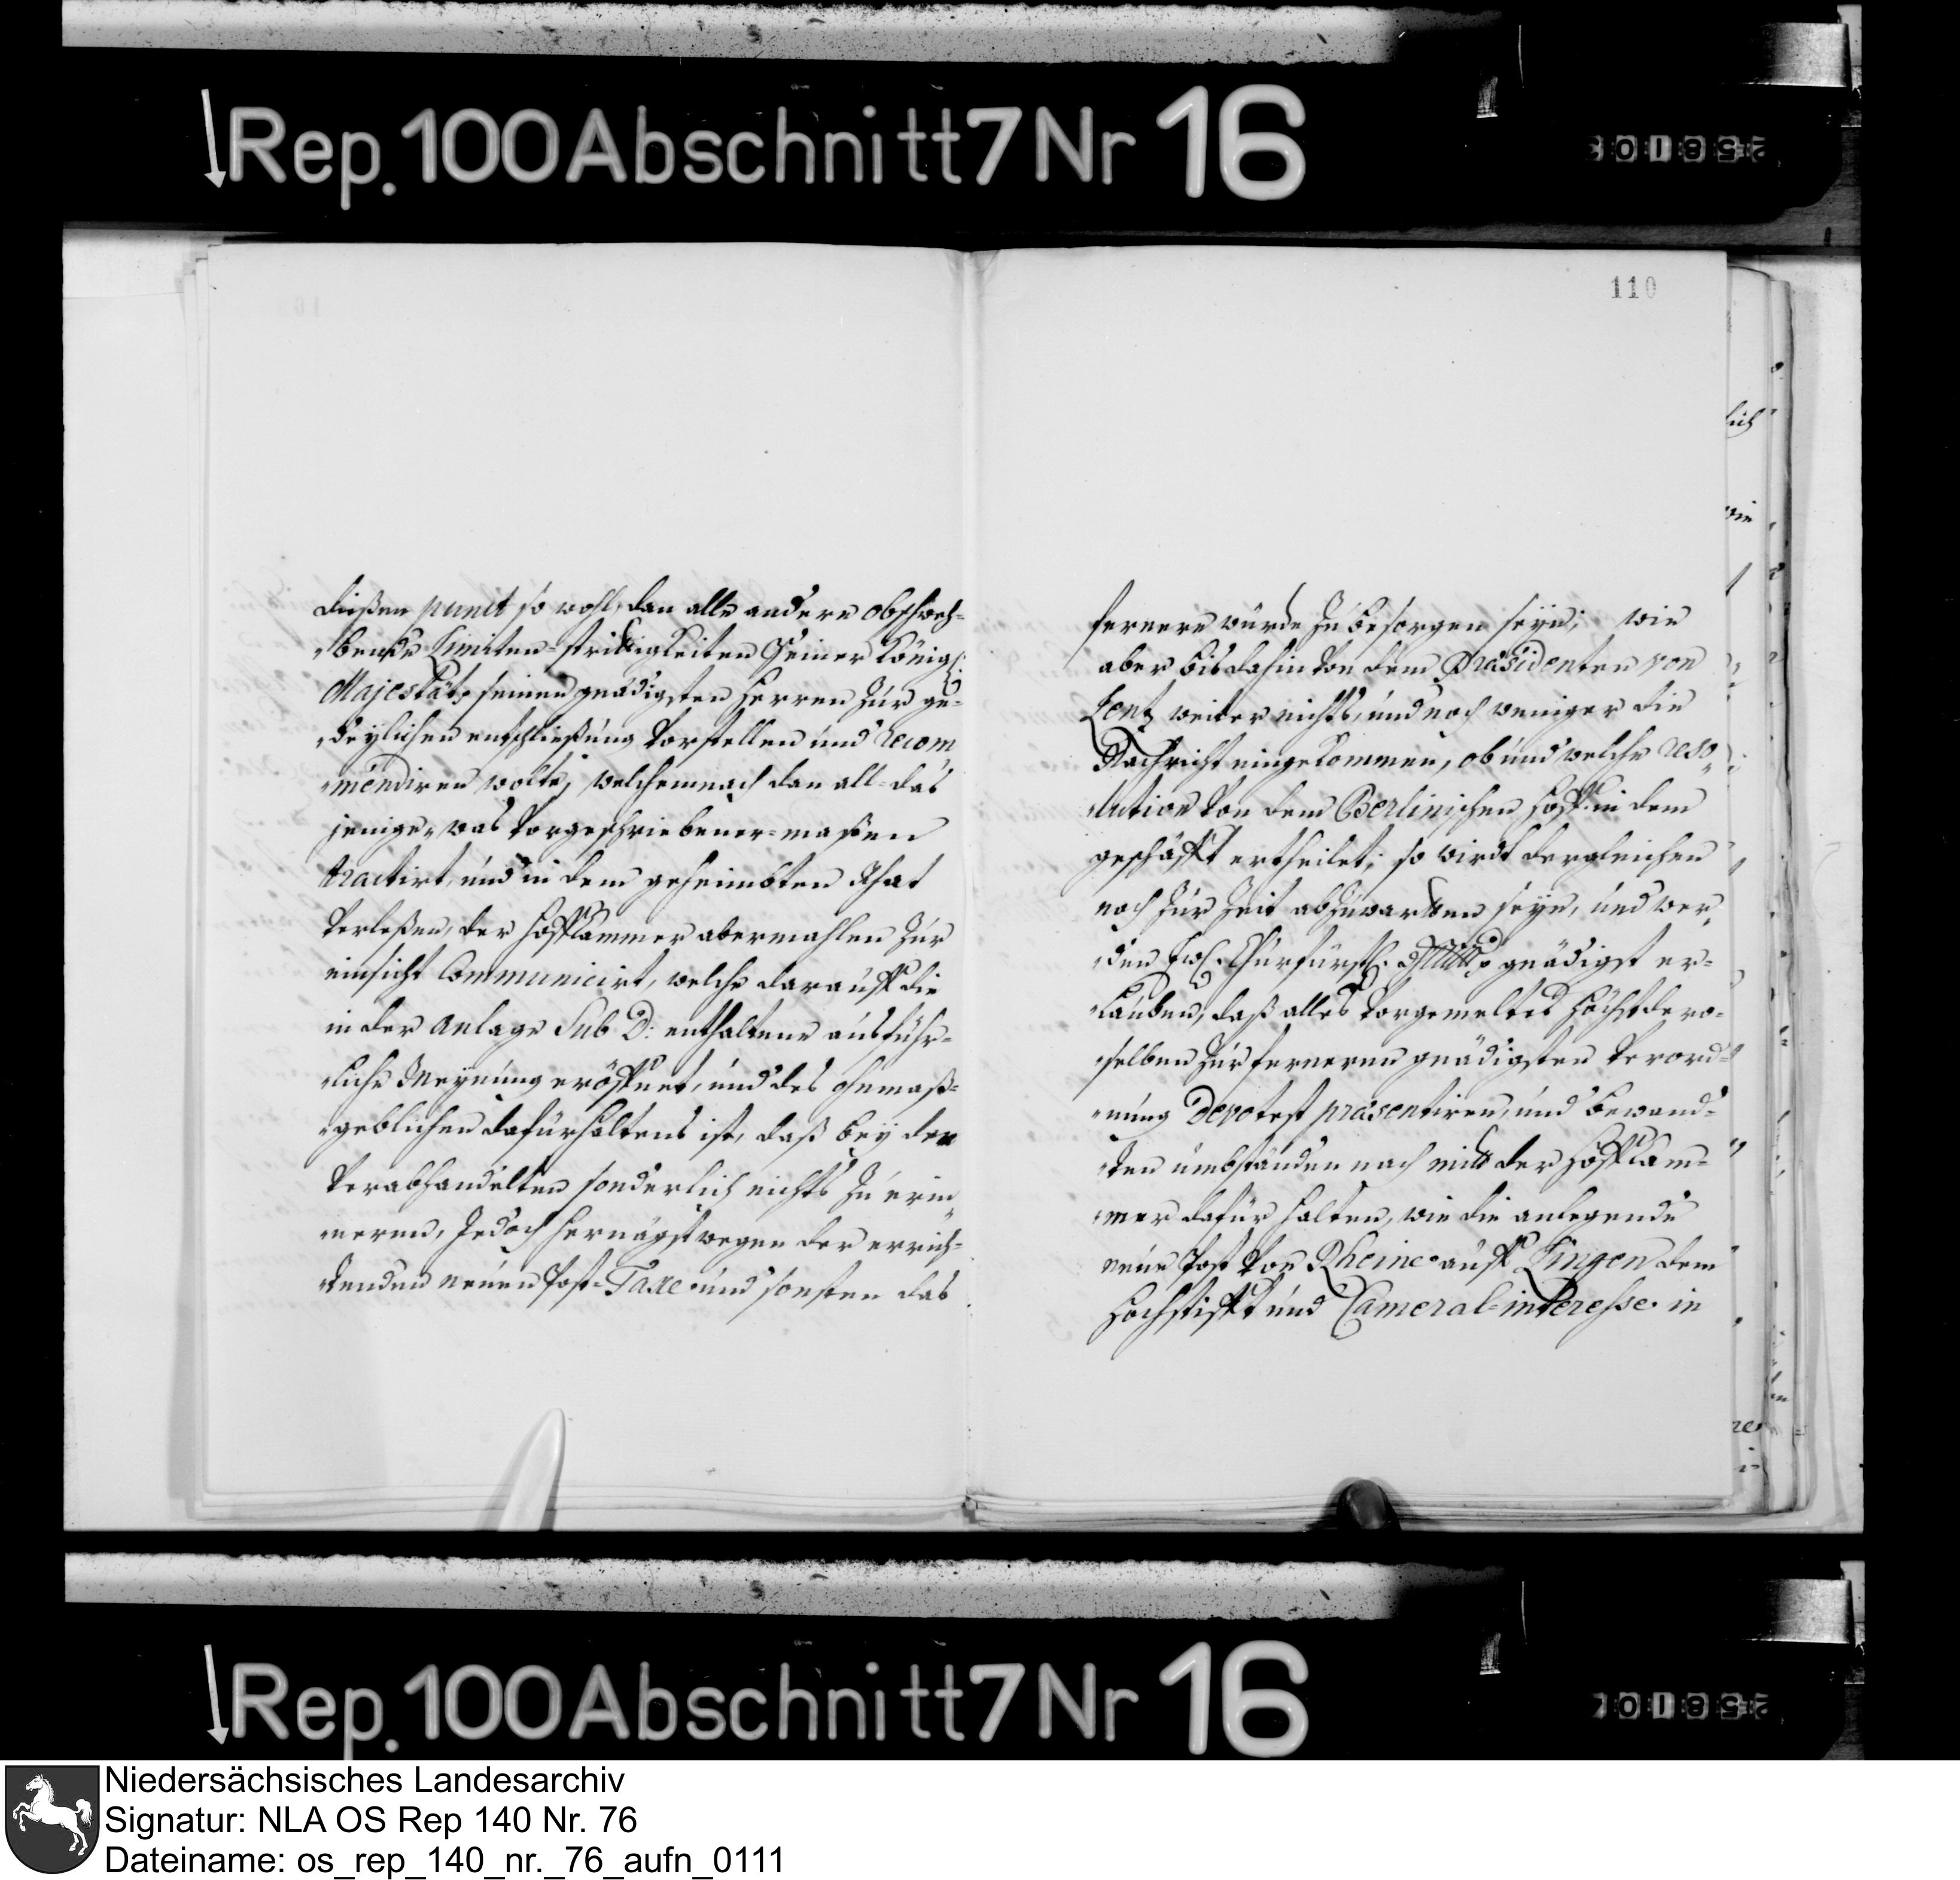 Rep. 100 Abschnitt 7 Nr 16
110
dießen punct so wohl, dan alle andere obschwe-
bende Limiten-strittigkeiten Seiner Königl:
Majestät seinem gnädigsten Herren zur ge-
deylichen entschließung vorstellen und recom
mendiren wolte; welchemnach dan all-das
jenige, was vorgeschriebener-maßen
tractirt, und in dem geheimbten Rhat
verleßen, der Hoffkammer abermahlen zur
einsicht Communicirt, welche darauff die
in der anlage Sub D: enthaltene ausführ-
liche Meynung eröffnet, und des ohnmaß-
geblichen dafürhaltens ist, daß bey den
verabhandelten sonderlich nichts zu erin
neren, Jedoch hernägst wegen der errich-
tenden neuen Post-Taxe und sonsten das
fernere würde zu besorgen seyn; wie
aber bis dahin von dem Præsidenten von
Lentz weiter nichts, und noch weniger die
Nachricht eingekommen, ob und welche reso
lution von dem Berlinischen Hoff in dem
geschäfft ertheilet; so wirdt dergleichen
noch zur Zeit abzuwarten seyn, und wer
den Ew. Churfürstl. gnädigst er-
lauben, daß alles vorgemeltes Höchstdero-
selben zur ferneren gnädigsten verord-
nung Devotest præsentiren, und bewand-
ten umbständen nach mit der Hoffkam-
mer dafür halten, wie die anlegende
neue Post von Rheine auff Lingen dem
Hochstifft und Cameral-interesse in
Rep. 100 Abschnitt 7 Nr 16
Niedersächsisches Landesarchiv
Signatur: NLA OS Rep 140 Nr. 76
Dateiname: os_rep_140_nr._76_aufn_0111